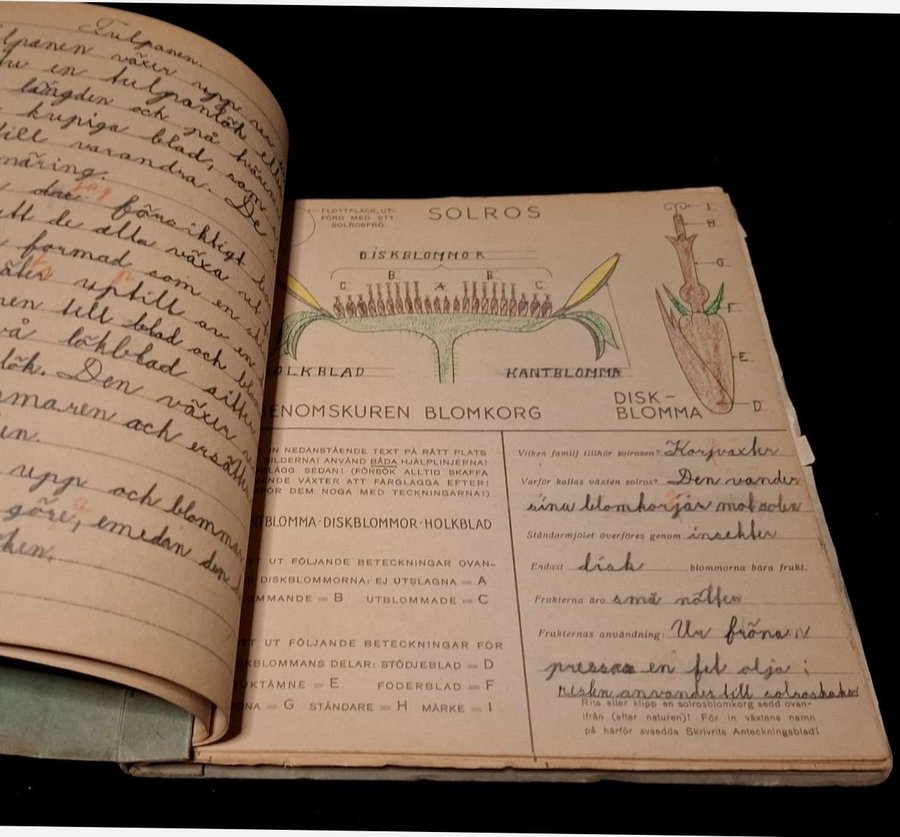 Tulpanen.
växer upp
en tulpanlök
längden och på tvären
kupiga blad, som
till varandra. De
näring.
jag
försiktigt
att de alla växa ut
formad som en
uptill av en
till blad och
lökblad sitter
lök. Den växer
och ersätter
upp och blommar
göre, emedan den
FLOTTFLÄCK, UT-
FÖRD MED ETT
SOLROSFRÖ.
SOLROS
DISKBLOMMOR
C B A B C
HOLKBLAD
KANTBLOMMA
GENOMSKUREN BLOMKORG
I
H
G
F
E
D
DISK-
BLOMMA
NEDANSTÅENDE TEXT PÅ RÄTT PLATS
BILDERNA! ANVÄND BÅDA HJÄLPLINJERNA!
SEDAN! (FÖRSÖK ALLTID SKAFFA
VÄXTER ATT FÄRGLÄGGA EFTER!
DEM NOGA MED TECKNINGARNA!)
KANTBLOMMA · DISKBLOMMOR · HOLKBLAD
UT FÖLJANDE BETECKNINGAR OVAN-
DISKBLOMMORNA: EJ UTSLAGNA = A
BLOMMANDE = B UTBLOMMADE = C
UT FÖLJANDE BETECKNINGAR FÖR
DISKBLOMMANS DELAR: STÖDJEBLAD = D
FRUKTÄMNE = E FODERBLAD = F
KRONA = G STÅNDARE = H MÄRKE = I
Vilken familj tillhör solrosen? Korgväxter
Varför kallas växten solros? Den vänder
sina blomkorgar mot solen
Ståndarmjölet överföres genom insekter
Endast disk blommorna bära frukt.
Frukterna äro små nötter
Frukternas användning: Ur fröna
pressas en fet olja;
resten användes till solroskakor
Rita eller klipp en solrosblomkorg sedd ovan-
ifrån (efter naturen)! För in växtens namn
på härför avsedda Skrivrita Anteckningsblad!